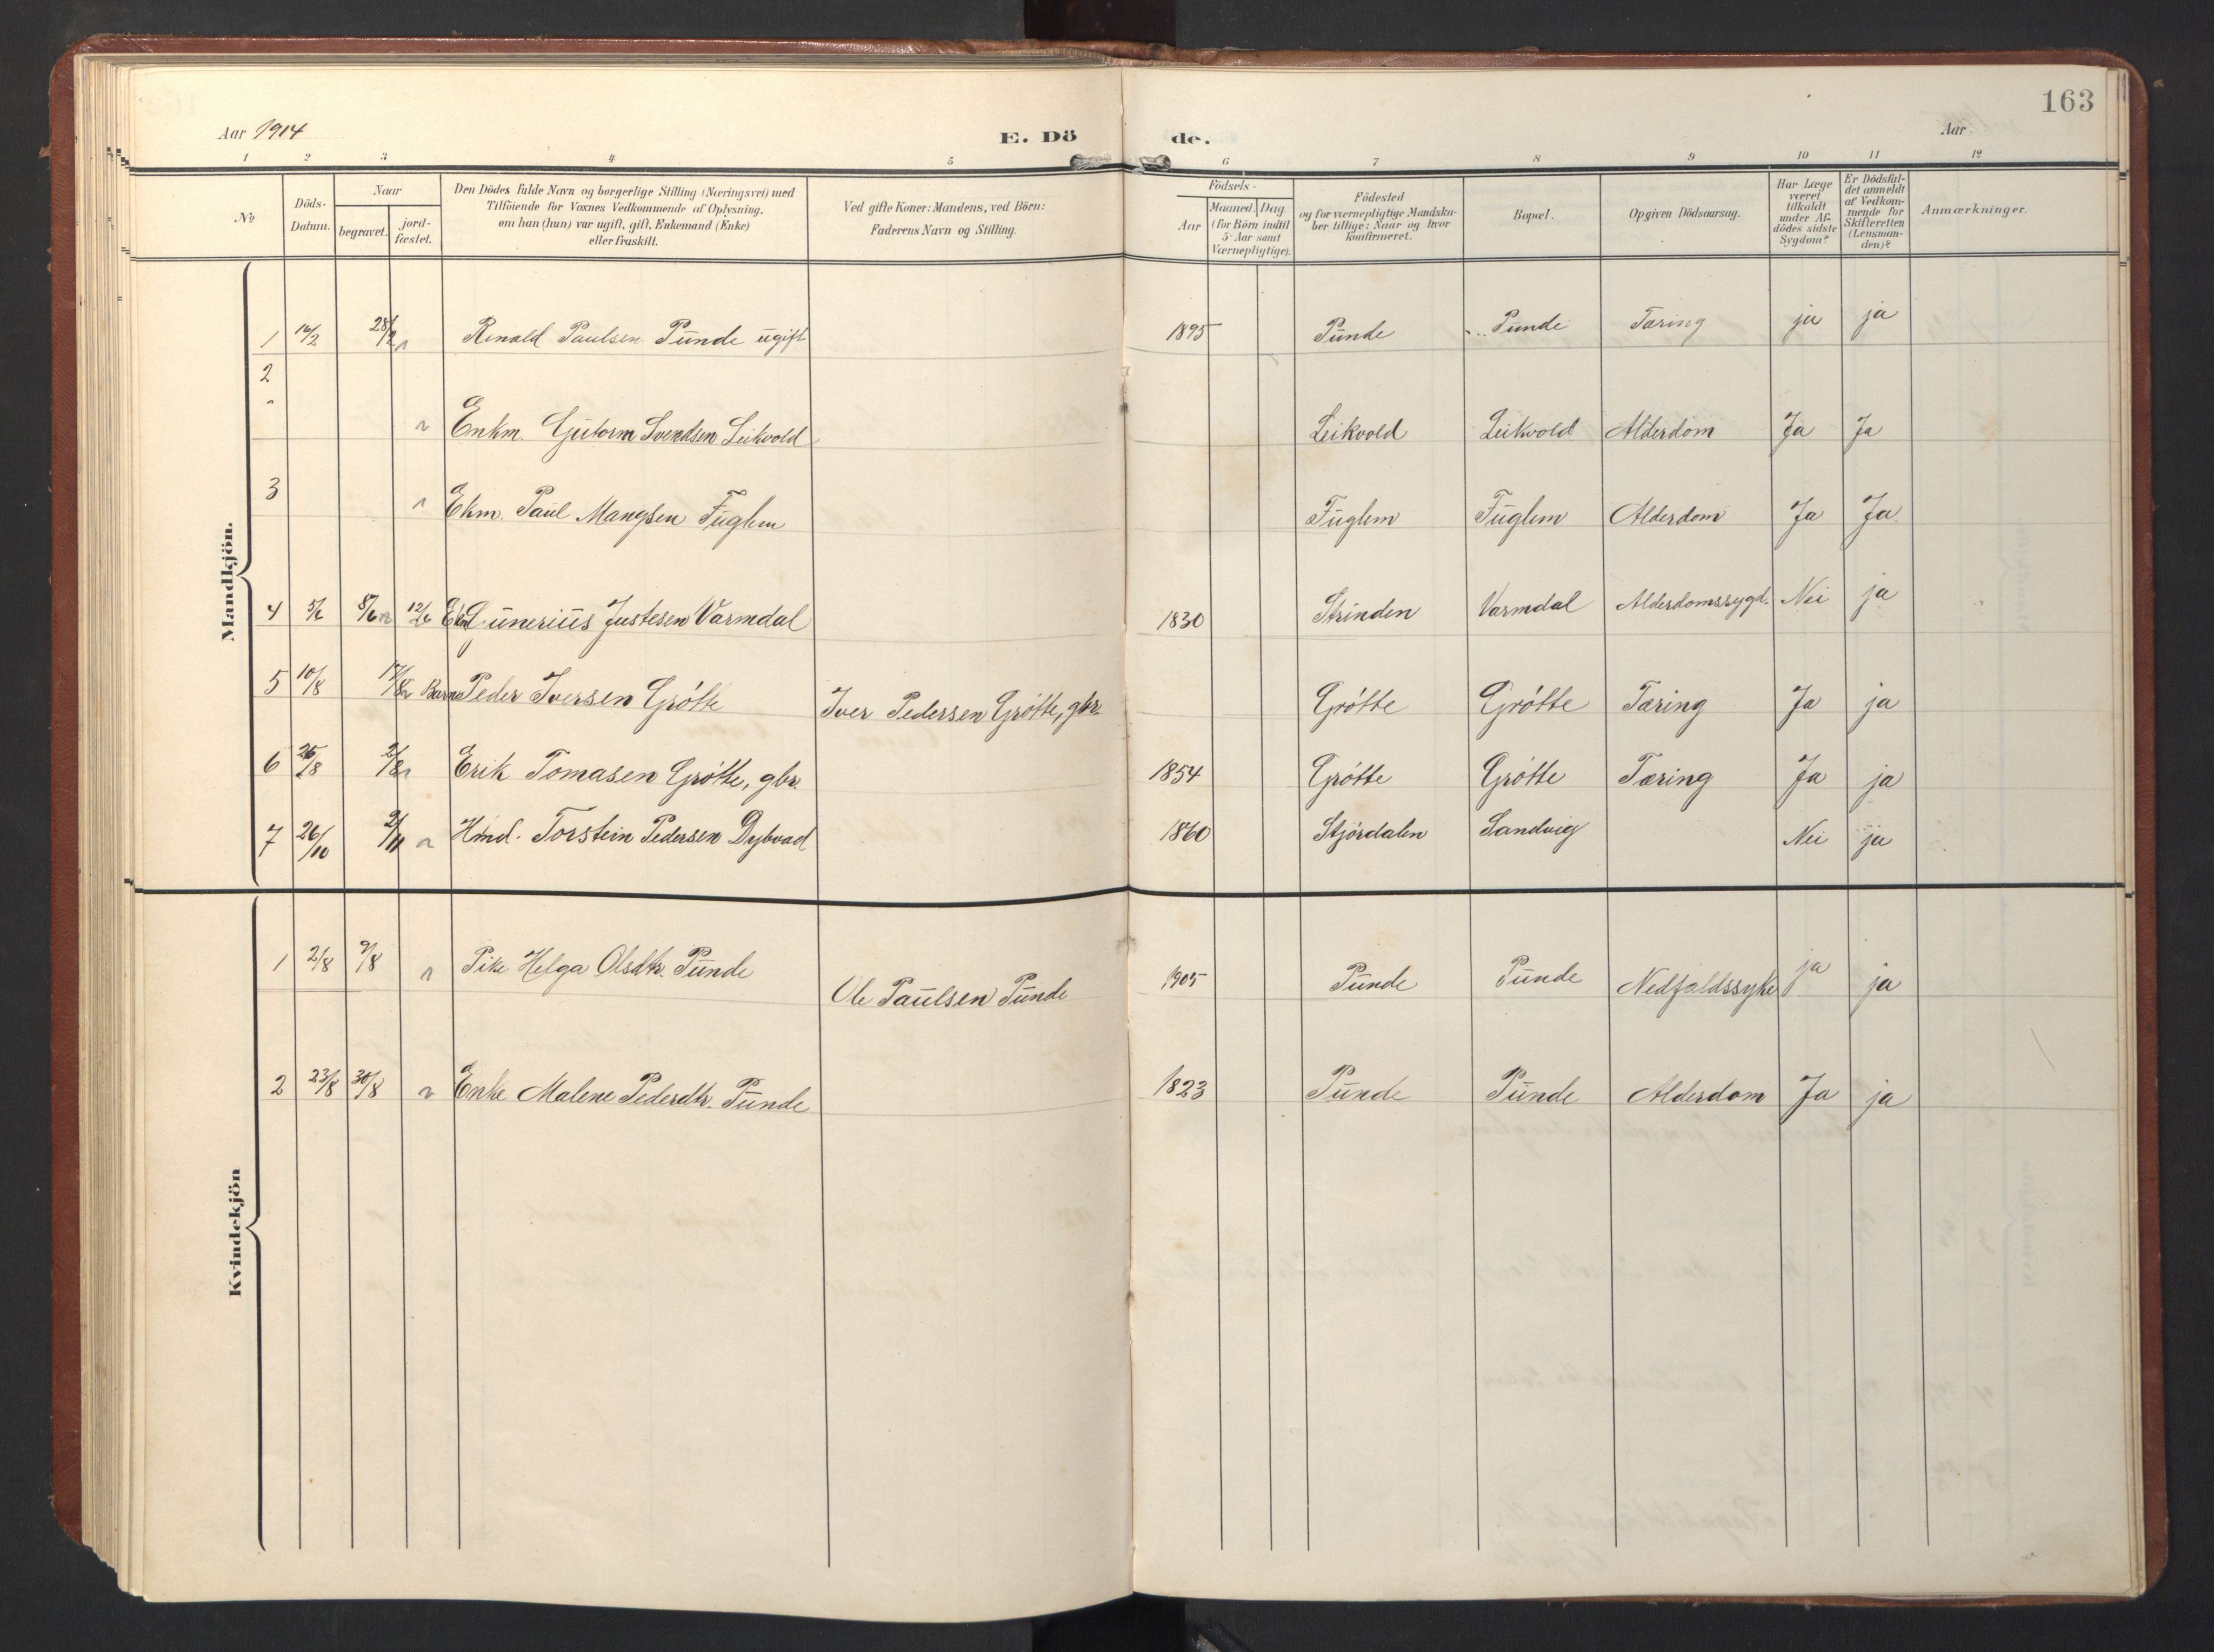 163
Aar 1914
E. Dö
de.
Aar
1 2 3 4 5 6 7 8 9 10 11 12
№
Döds-
Datum.
Naar
begravet.
jord-
fæstet.
Den Dödes fulde Navn og borgerlige Stilling (Næringsvei) med
Tilföiende for Voxnes Vedkommende af Oplysning,
om han (hun) var ugift, gift, Enkemand (Enke)
eller fraskilt.
Ved gifte Koner: Mandens, ved Börn:
Faderens Navn og Stilling.
Födsels-
Aar
Maaned. Dag.
(for Börn indtil
5 Aar samt
Værnepligtige).
Födested
og for værnepligtige Mandska-
ber tillige: Naar og hvor
konfirmeret.
Bopæl.
Opgiven Dödsaarsag.
Har Læge
været
tilkaldt
under Af-
dödes sidste
Sygdom?
Er Dödsfal-
det anmeldt
af Vedkom-
mende for
Skifteretten
(Lensman-
den)?
Anmærkninger.
Mandkjön.
1 16/2 28/2 Renald Paulsen Punde ugift 1895 Punde Punde Tæring ja ja
2
Enkm. Gutorm Svendsen Leikvold Leikvold Leikvold Alderdom Ja Ja
3 Ekm. Paul Mangsen Fuglem Fuglem Fuglem Alderdom Ja Ja
4 5/6 8/6 12/6 Ekm Gunerius Justesen Varmdal 1830 Strinden Varmdal Alderdomssygd. Nei ja
5 10/8 17/8 Barn Peder Iversen Grøtte Iver Pedersen Grøtte, gbr. Grøtte Grøtte Tæring Ja ja
6 Erik Tomasen Grøtte, gbr. 1854 Grøtte Grøtte Tæring Ja ja
7 26/10 2/11 Hmd. Torstein Pedersen Dybvad 1860 Stjørdalen Sandvig Nei ja
Kvindekjön
1 2/8 9/8 Pike Helga Olsdtr. Punde Ole Paulsen Punde 1905 Punde Punde Nedfaldssyke ja ja
2 23/8 30/8 Enke Malene Pedersdtr. Punde 1823 Punde Punde Alderdom Ja ja